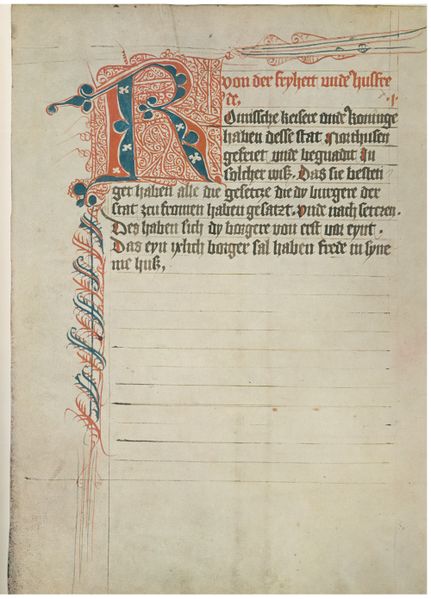 von der fryheit unde husfre
de. .j.
ROmissche keisere onde koninge
haben desse stat Northusen
gefriet unde begnadit In
solcher wiß. Das sie besten
ger haben alle die gesetcze die dy burgere der
stat zcu fromen haben gesatzt. Vnde nach setczen.
Des haben sich dy borgere von erst vor eynt.
Das eyn iczlich borger sal haben frede in syne
me huß.